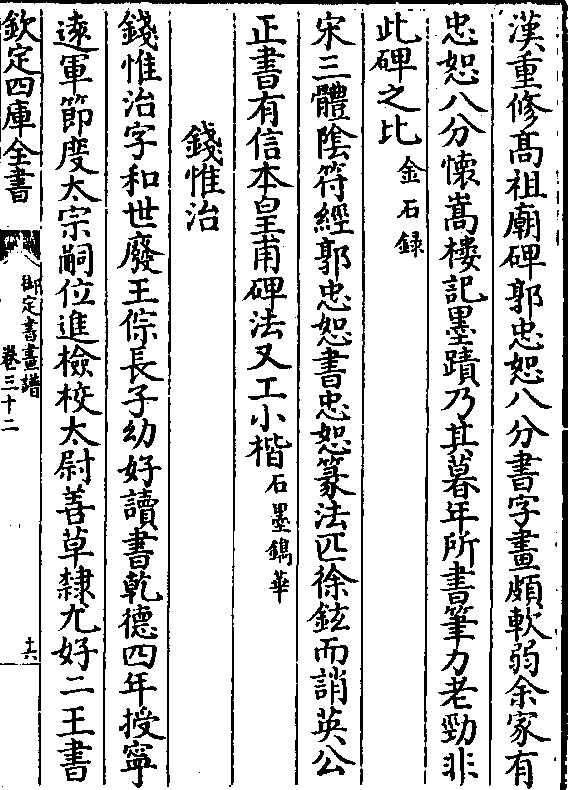 漢重修髙祖廟碑郭忠恕八分書字畫頗軟弱余家有
忠恕八分懷嵩樓記墨蹟乃其暮年所書筆力老勁非
此碑之比金石録
宋三體隂符經郭忠恕書忠恕篆法匹徐鉉而誚英公
正書有信本皇甫碑法又工小楷石墨鐫華
錢惟治
錢惟治字和世廢王倧長子幼好讀書乾德四年授寜
逺軍節度太宗嗣位進檢校太尉善草隸尤好二王書
欽定四庫全書
御定書畫譜
卷三十二
十六